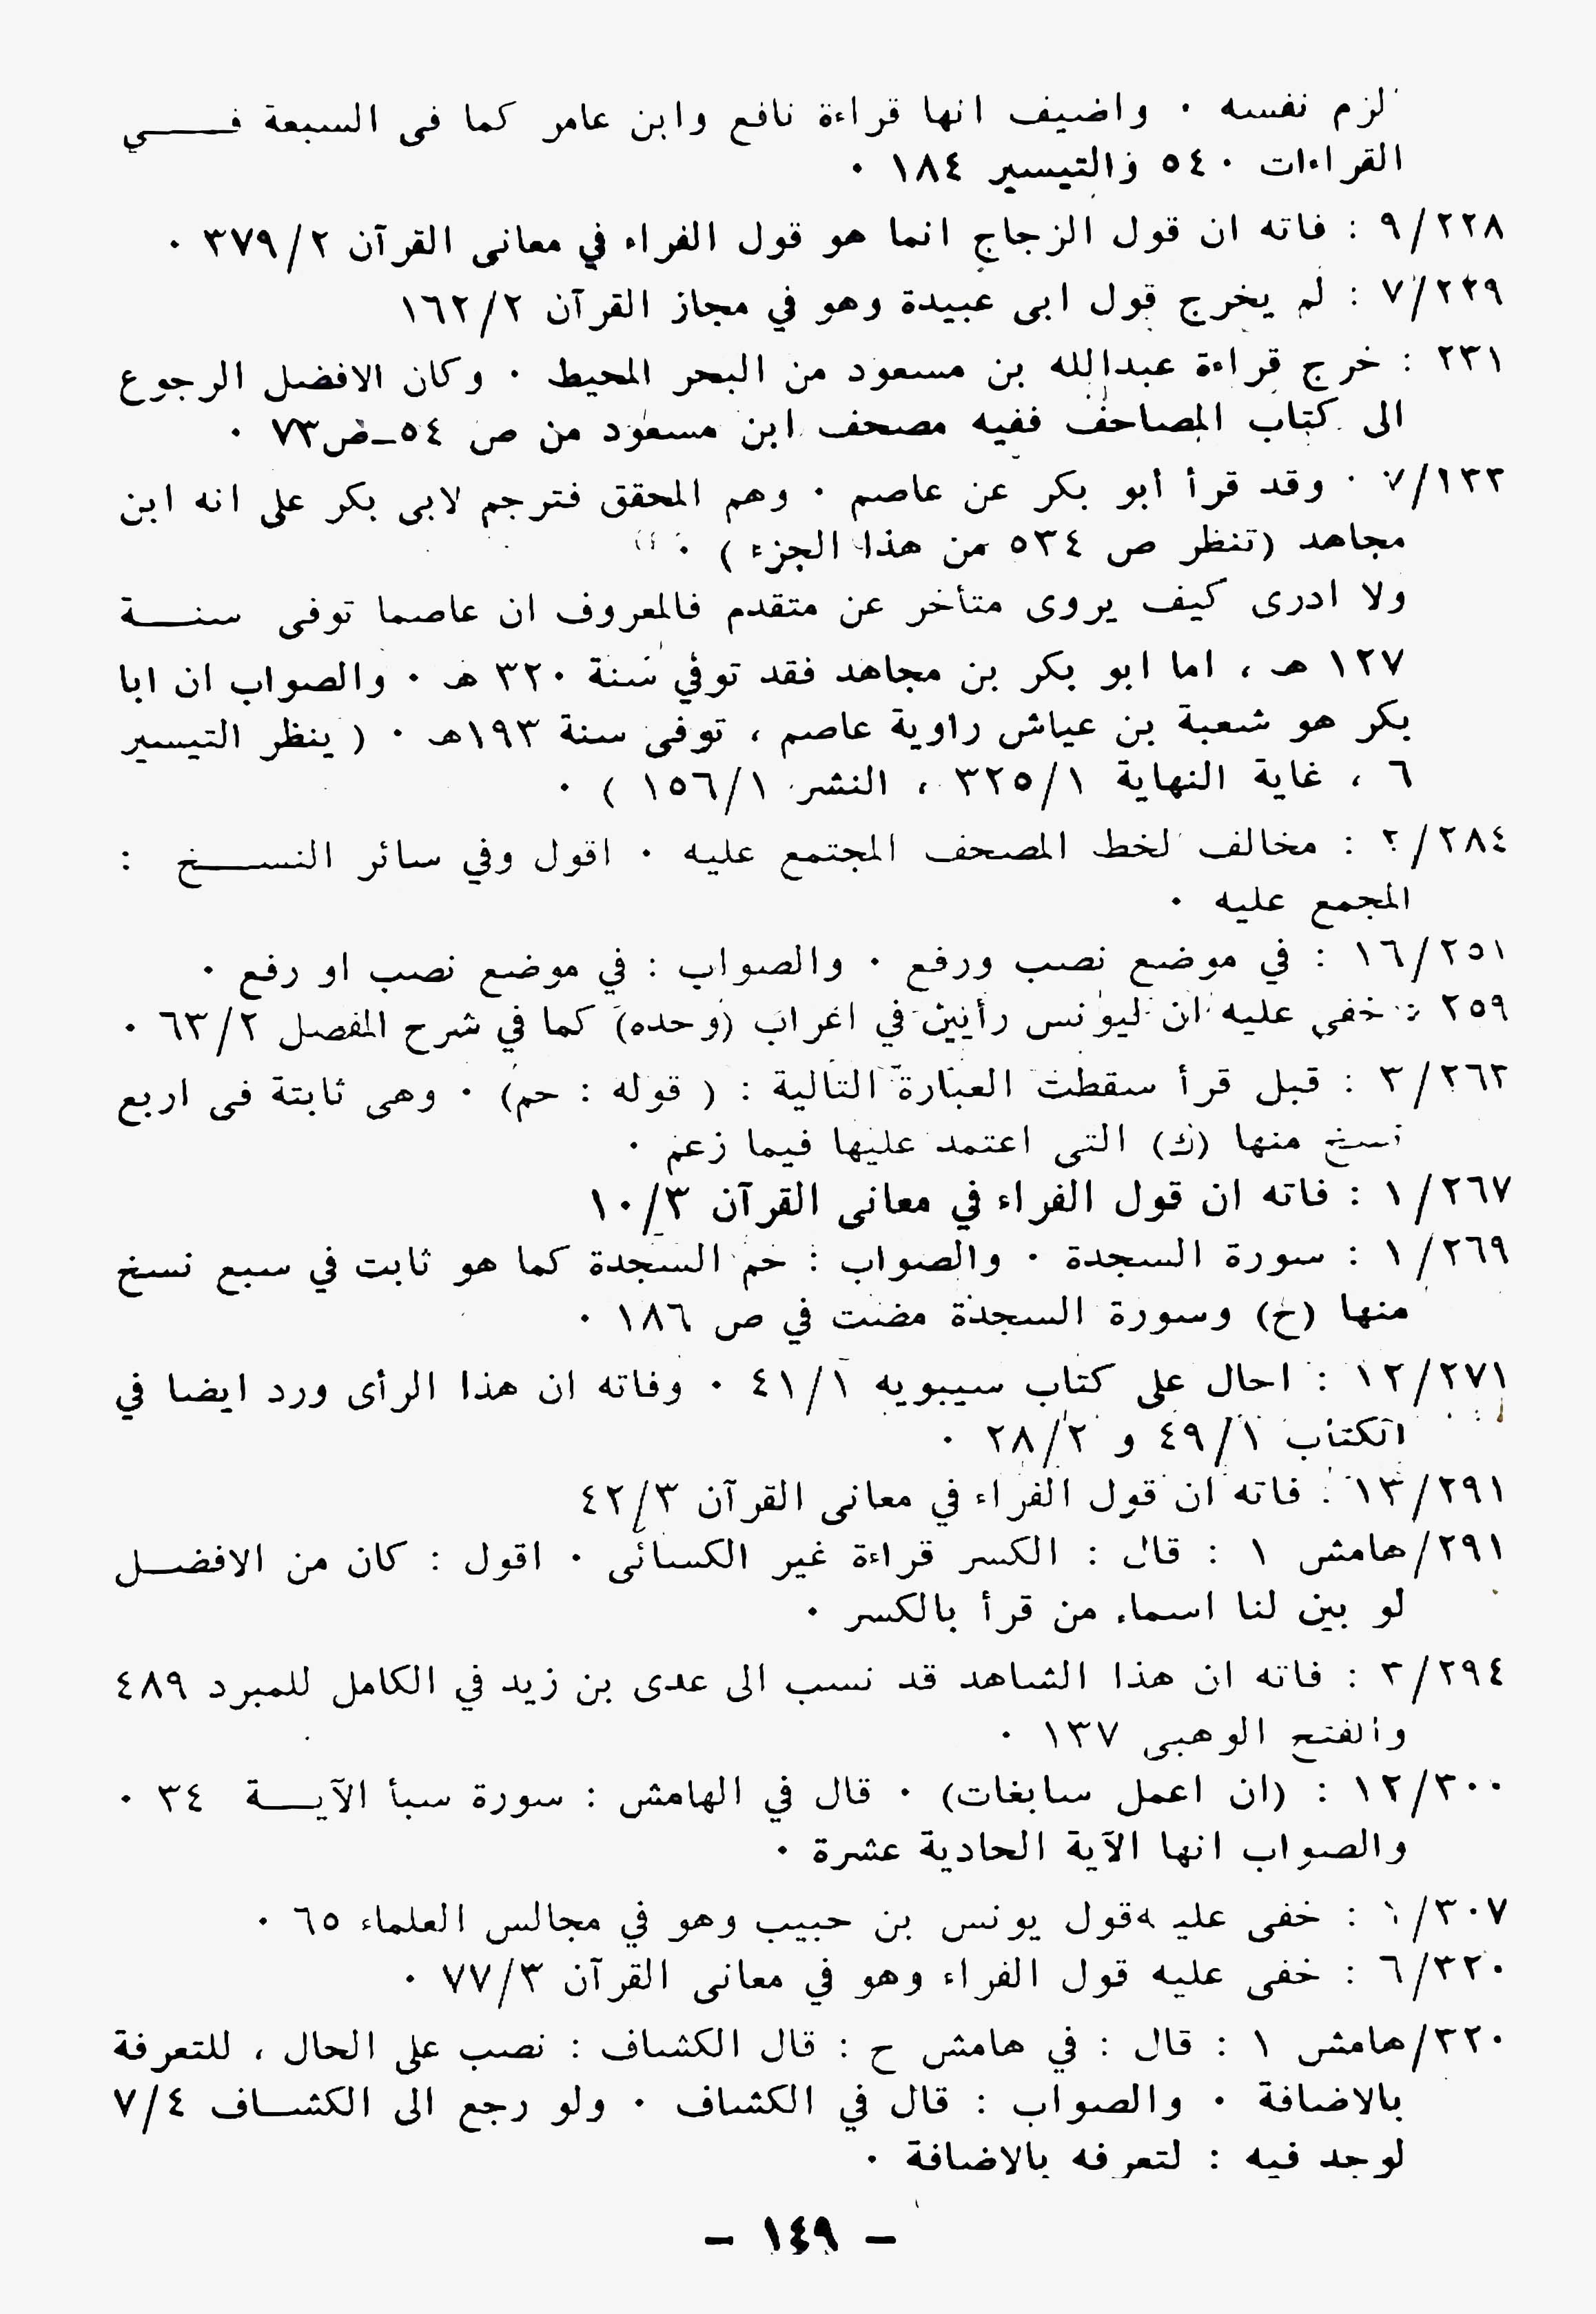 لزم نفسه ٠ واضيف انها قراءة نافع وابن عامر كما فى السبعة فــــي
القراءات ٥٤٠ والتيسير ١٨٤ ٠
٩/٢٢٨ : فاته ان قول الزجاج انما هو قول الفراء في معانى القرآن ٣٧٩/٢ ٠
٧/٢٢٩ : لم يخرج قول ابى عبيدة وهو في مجاز القرآن ١٦٢/٢
٢٣١ : خرج قراءة عبدالله بن مسعود من البحر المحيط ٠ وكان الافضل الرجوع
الى كتاب المصاحف ففيه مصحف ابن مسعود من ص ٥٤ــص٧٣ ٠
٧/١٣٣ ٠ وقد قرأ أبو بكر عن عاصم ٠ وهم المحقق فترجم لابى بكر على انه ابن
مجاهد (تنظر ص ٥٣٤ من هذا الجزء ) ٠
ولا ادرى كيف يروى متأخر عن متقدم فالمعروف ان عاصما توفى ســنــة
١٢٧ هـ ، اما ابو بكر بن مجاهد فقد توفي سنة ٣٢٠ هـ ٠ والصواب ان ابا
بكر هو شعبة بن عياش راوية عاصم ، توفى سنة ١٩٣هـ ٠ ( ينظر التيسير
٦ ، غاية النهاية ٣٢٥/١ ، النشر ١٥٦/١ ) ٠
٢/٢٨٤ : مخالف لخط المصحف المجتمع عليه ٠ اقول وفي سائر النســـخ :
المجمع عليه ٠
١٦/٢٥١ : في موضع نصب ورفع ٠ والصواب : في موضع نصب او رفع ٠
٢٥٩ : خفى عليه ان ليونس رأيين في اعراب (وحده) كما في شرح المفصل ٦٣/٢ ٠
٣/٢٦٢ : قبل قرأ سقطت العبارة التالية : ( قوله : حم) ٠ وهى ثابتة فى اربع
نسخ منها (ك) التى اعتمد عليها فيما زعم ٠
١/٢٦٧ : فاته ان قول الفراء في معانى القرآن ١٠/٣
١/٢٦٩ : سورة السجدة ٠ والصواب : حم السجدة كما هو ثابت في سبع نسخ
منها (ح) وسورة السجدة مضت في ص ١٨٦ ٠
١٢/٢٧١ : احال على كتاب سيبويه ٤١/١ ٠ وفاته ان هذا الرأى ورد ايضا في
الكتاب ٤٩/١ و ٢٨/٢ ٠
١٣/٢٩١ : فاته ان قول الفراء في معانى القرآن ٤٢/٣
٢٩١/هامش ١ : قال : الكسر قراءة غير الكسائى ٠ اقول : كان من الافضــل
لو بين لنا اسماء من قرأ بالكسر ٠
٣/٢٩٤ : فاته ان هذا الشاهد قد نسب الى عدى بن زيد في الكامل للمبرد ٤٨٩
والفتح الوهبى ١٣٧ ٠
١٢/٣٠٠ : (ان اعمل سابغات) ٠ قال في الهامش : سورة سبأ الآيــــة ٣٤ ٠
والصواب انها الآية الحادية عشرة ٠
١/٣٠٧ : خفى عليه قول يونس بن حبيب وهو في مجالس العلماء ٦٥ ٠
٦/٣٢٠ : خفى عليه قول الفراء وهو في معانى القرآن ٧٧/٣ ٠
٣٢٠/هامش ١ : قال : في هامش ح : قال الكشاف : نصب على الحال ، للتعرفة
بالاضافة ٠ والصواب : قال في الكشاف ٠ ولو رجع الى الكشــاف ٧/٤
لوجد فيه : لتعرفه بالاضافة ٠
– ١٤٩ –